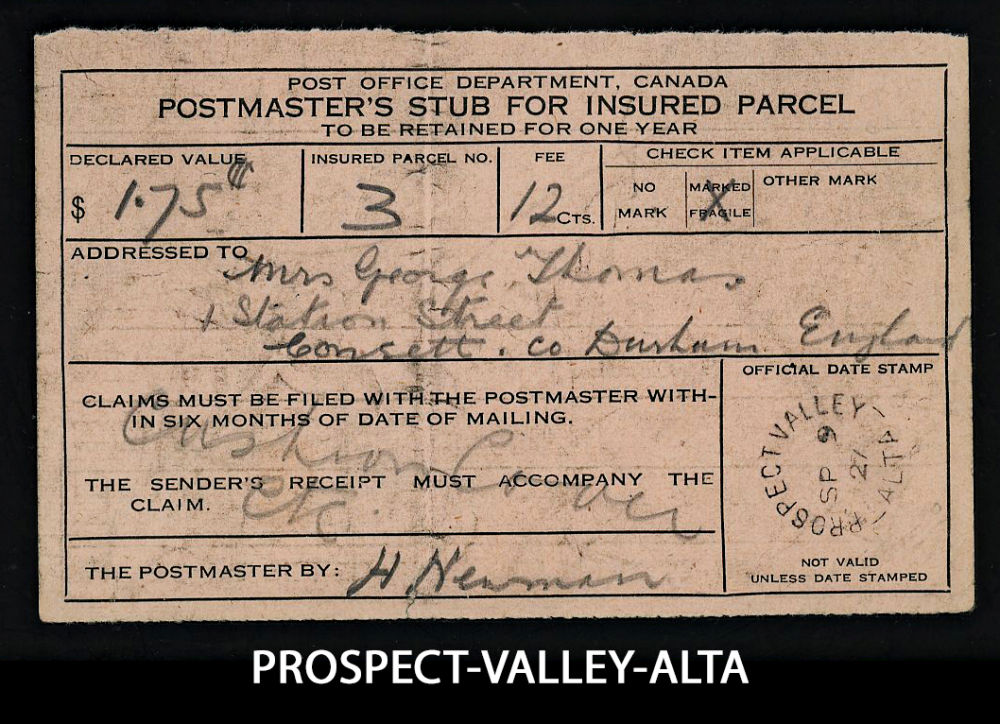 POST OFFICE DEPARTMENT, CANADA
POSTMASTER'S STUB FOR INSURED PARCEL
TO BE RETAINED FOR ONE YEAR
DECLARED VALUE
$ 1.75
INSURED PARCEL NO.
3
FEE
12 CTS.
CHECK ITEM APPLICABLE
NO MARK
MARKED FRAGILE
X
OTHER MARK
ADDRESSED TO
Mrs George Thomas
1 Station Street
Consett. Co Durham England
CLAIMS MUST BE FILED WITH THE POSTMASTER WITH-
IN SIX MONTHS OF DATE OF MAILING.
Cushion Cover
Etc.
THE SENDER'S RECEIPT MUST ACCOMPANY THE
CLAIM.
THE POSTMASTER BY: H Newman
OFFICIAL DATE STAMP
PROSPECT VALLEY
SP 9
27
ALTA
NOT VALID
UNLESS DATE STAMPED
PROSPECT-VALLEY-ALTA